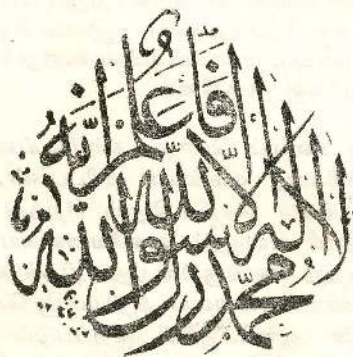 فَاعْلَمْ أَنَّهُ
لا اله الا الله
محمد رسول الله